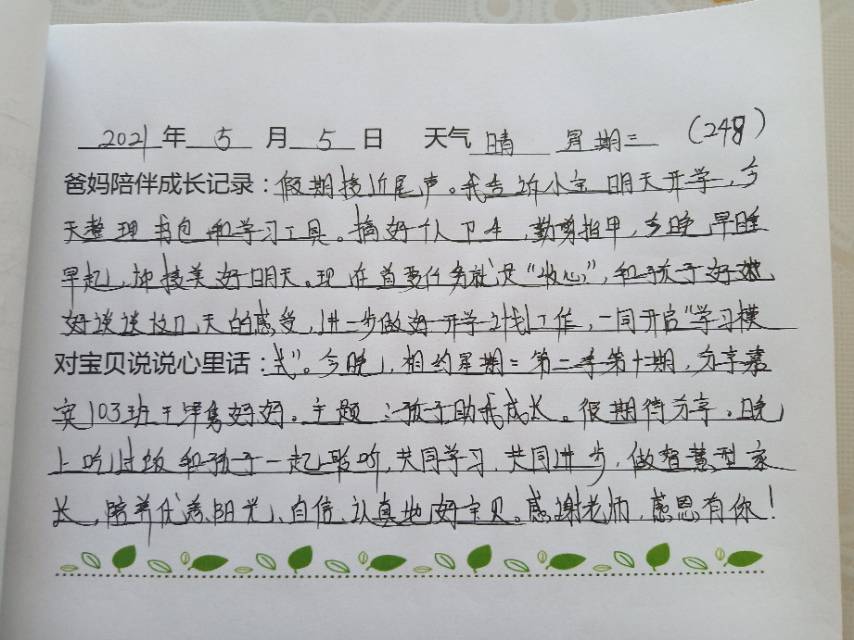 2021年 5 月 5 日 天气 晴 星期三 (248)
爸妈陪伴成长记录:假期接近尾声。我告诉小宝明天开学,今
天整理书包和学习工具。搞好个人卫生,勤剪指甲,今晚早睡
早起,迎接美好明天。现在首要任务就是“收心”,和孩子好好
好谈谈这几天的感受,进一步做好开学计划工作,一同开启“学习模
对宝贝说说心里话:式”。今晚,相约星期二第二季第十期,分享嘉
宾103班王泽隽妈妈。主题:孩子助我成长。很期待分享。晚
上吃过饭和孩子一起聆听,共同学习,共同进步,做智慧型家
长,陪养优秀、阳光、自信、认真地好宝贝。感谢老师,感恩有你!